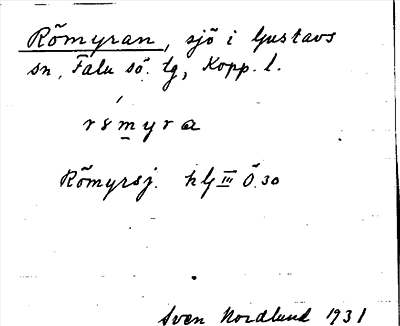 Römyran, sjö i Gustavs
sn, Falu sö. tg, Kopp. l.
Römyrsj. hG III Ö.30
Sven Nordlund 1931